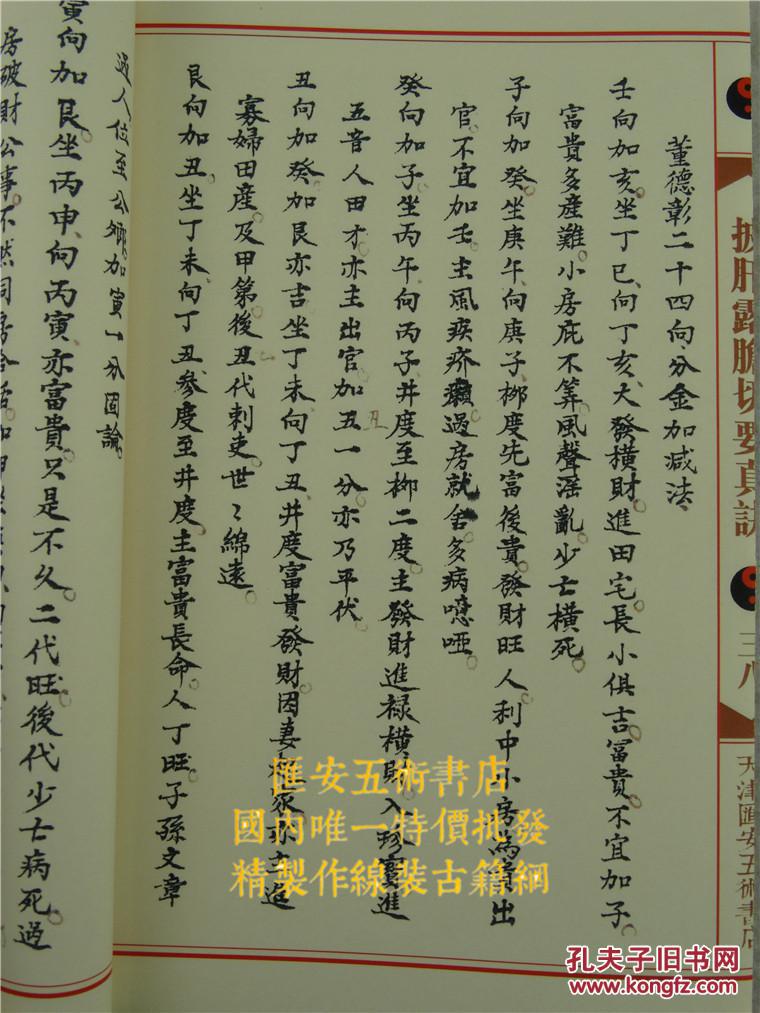 披肝露膽切要真訣
三八
天津匯安五術書店
董德彰二十四向分金加減法
壬向加亥坐丁巳向丁亥大發橫財進田宅長小俱吉富貴不宜加子
富貴多產難小房庇不筭風聲淫亂少士橫死
子向加癸坐庚午向庚子柳度先富後貴發財旺人利中小房為貴出
官不宜加壬主風疾疥癩過房就舍多病噁啞
癸向加子坐丙午向丙子井度至柳二度主發財進祿橫財入珍寶進
五音人田才亦主出官加丑一分亦乃平伏
丑
丑向加癸加艮亦吉坐丁未向丁丑井度富貴發財因妻
寡婦田產及甲第後丑代刺吏世〻綿遠
艮向加丑坐丁未向丁丑參度至井度主富貴長命人丁旺子孫文章
過人位至公卿加寅一分因論
寅向加艮坐丙申向丙寅亦富貴只是不久二代旺後代少士病死過
房破財公事不然同房合活如甲
匯安五術書店
國內唯一特價批發
精製作線裝古籍網
孔夫子旧书网
www.kongfz.com